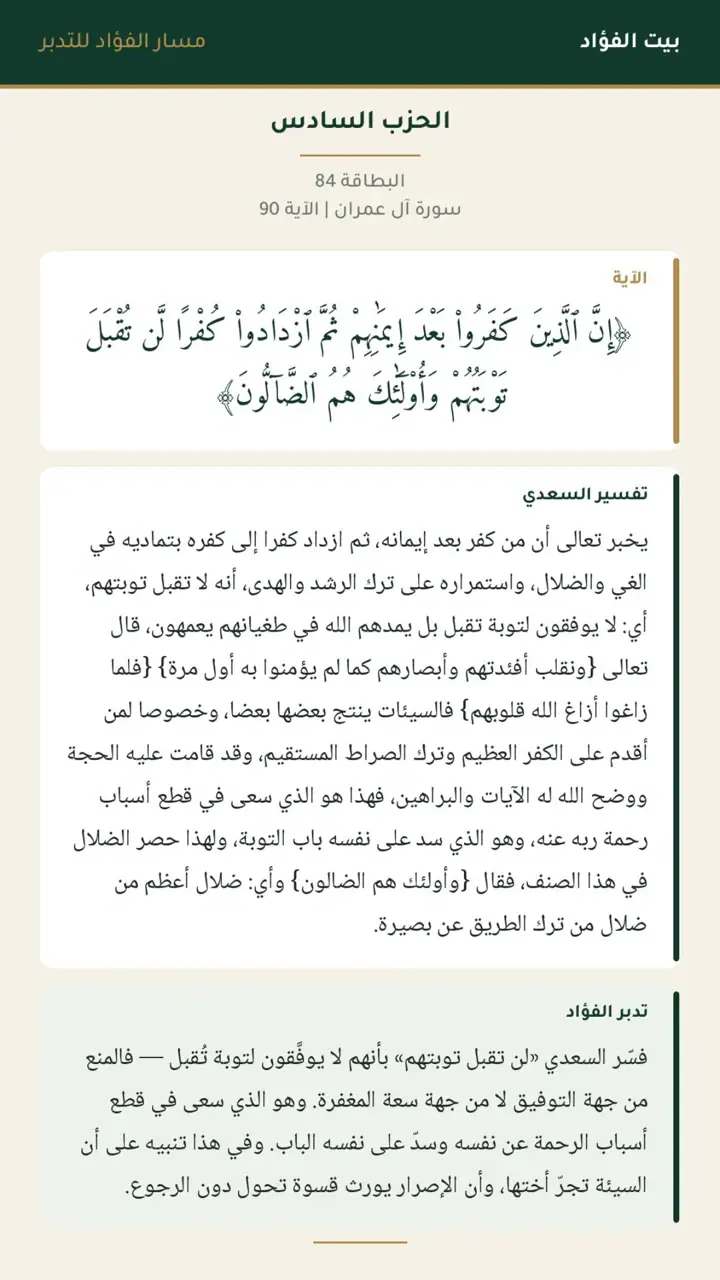 بيت الفؤاد
مسار الفؤاد للتدبر
الحزب السادس
البطاقة 84
سورة آل عمران | الآية 90
الآية
﴿إِنَّ ٱلَّذِينَ كَفَرُوا۟ بَعْدَ إِيمَٰنِهِمْ ثُمَّ ٱزْدَادُوا۟ كُفْرًا لَّن تُقْبَلَ
تَوْبَتُهُمْ وَأُو۟لَٰٓئِكَ هُمُ ٱلضَّآلُّونَ﴾
تفسير السعدي
يخبر تعالى أن من كفر بعد إيمانه، ثم ازداد كفرا إلى كفره بتماديه في
الغي والضلال، واستمراره على ترك الرشد والهدى، أنه لا تقبل توبتهم،
أي: لا يوفقون لتوبة تقبل بل يمدهم الله في طغيانهم يعمهون، قال
تعالى {ونقلب أفئدتهم وأبصارهم كما لم يؤمنوا به أول مرة} {فلما
زاغوا أزاغ الله قلوبهم} فالسيئات ينتج بعضها بعضا، وخصوصا لمن
أقدم على الكفر العظيم وترك الصراط المستقيم، وقد قامت عليه الحجة
ووضح الله له الآيات والبراهين، فهذا هو الذي سعى في قطع أسباب
رحمة ربه عنه، وهو الذي سد على نفسه باب التوبة، ولهذا حصر الضلال
في هذا الصنف، فقال {وأولئك هم الضالون} وأي: ضلال أعظم من
ضلال من ترك الطريق عن بصيرة.
تدبر الفؤاد
فسّر السعدي «لن تقبل توبتهم» بأنهم لا يوفَّقون لتوبة تُقبل — فالمنع
من جهة التوفيق لا من جهة سعة المغفرة. وهو الذي سعى في قطع
أسباب الرحمة عن نفسه وسدّ على نفسه الباب. وفي هذا تنبيه على أن
السيئة تجرّ أختها، وأن الإصرار يورث قسوة تحول دون الرجوع.